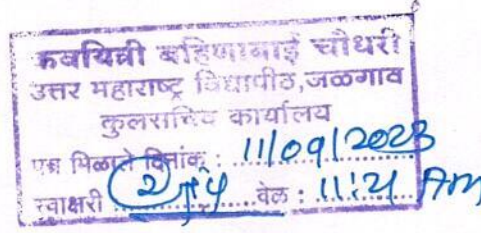 कवयित्री बहिणाबाई चौधरी
उत्तर महाराष्ट्र विद्यापीठ,जळगाव
कुलसचिव कार्यालय
पत्र मिळाले दिनांक : 11/09/2023
स्वाक्षरी वेळ : 11:21 AM